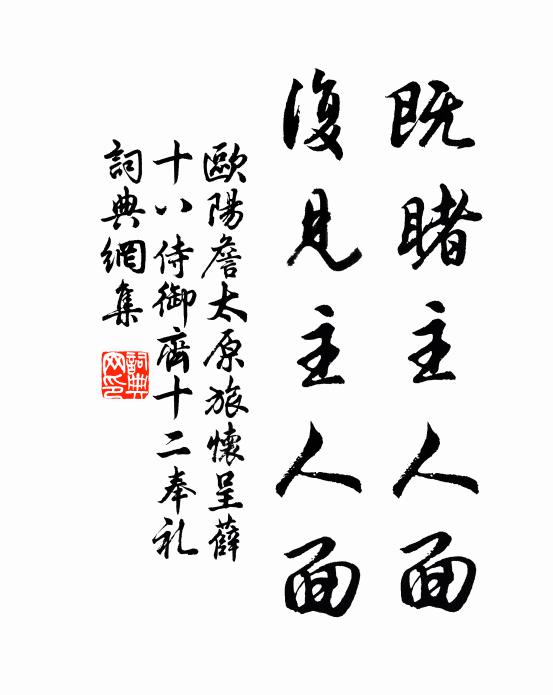 既睹主人面
復見主人面
歐陽詹太原旅懷呈薛
十八侍御齊十二奉礼
詞典網集
詞典網印